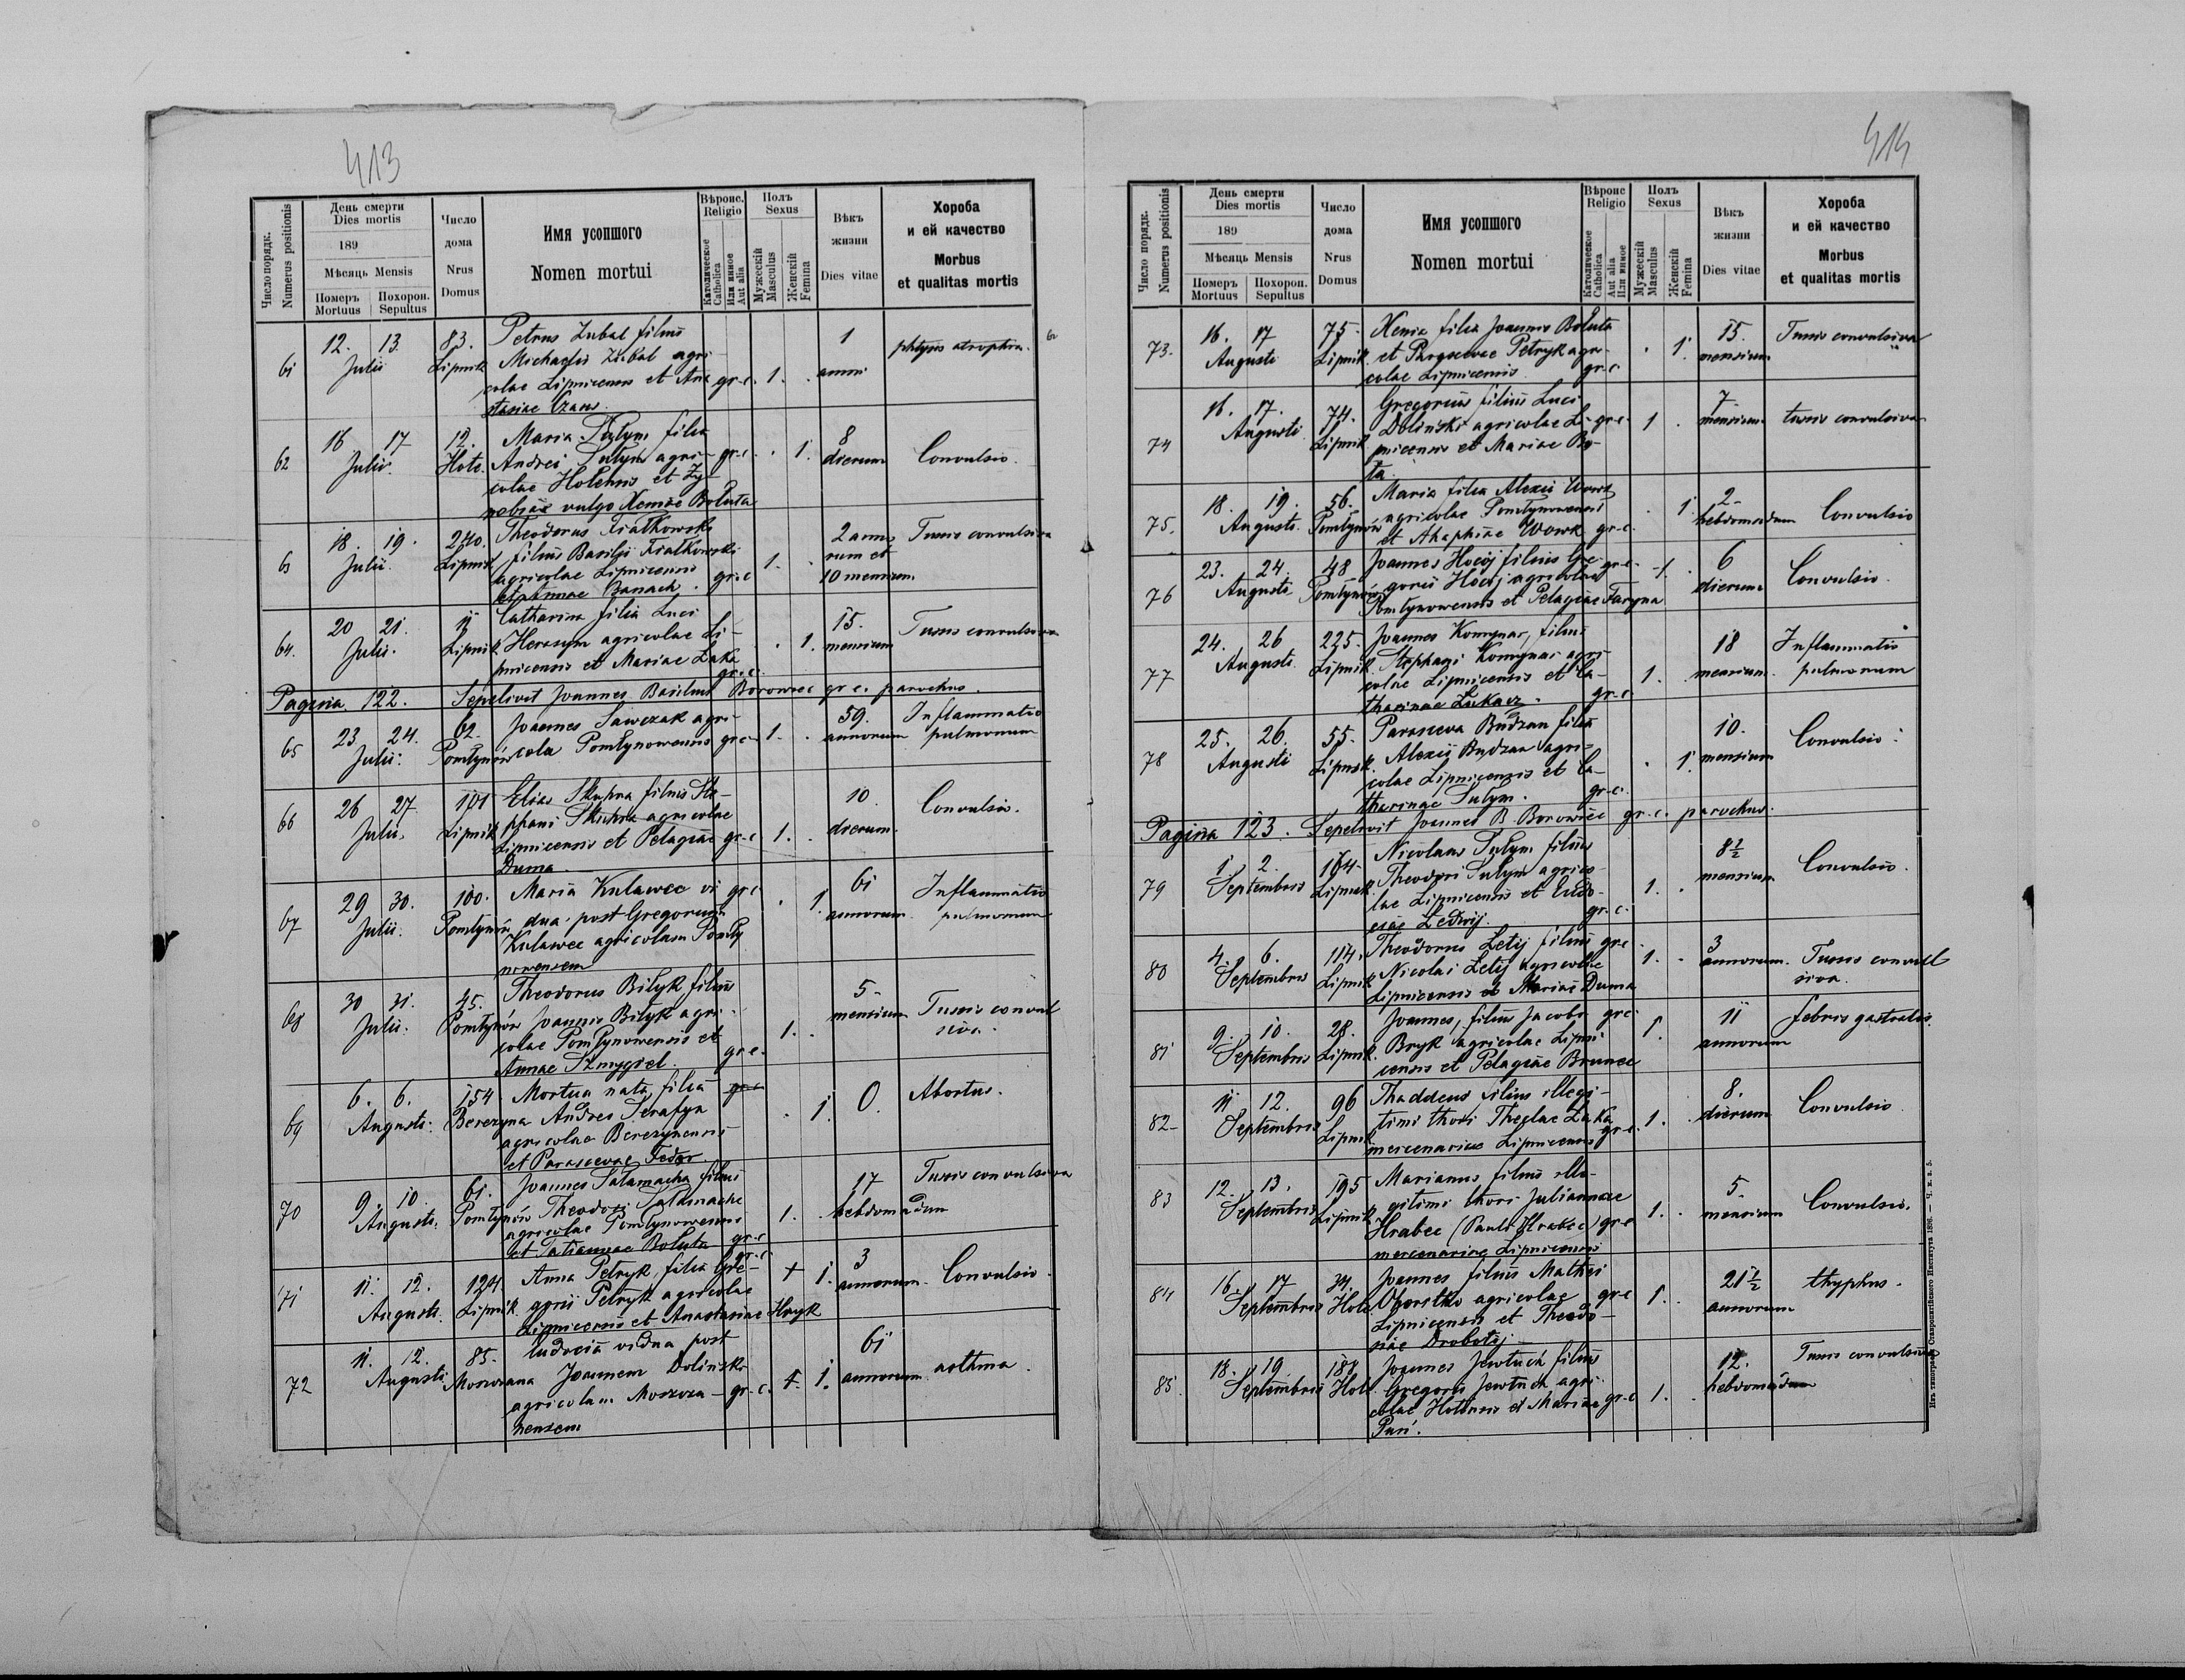 413
Число порядк.
Numerus positionis
День смерти
Dies mortis
189
Мѣсяць Mensis
Померъ
Mortuus
Похорон.
Sepultus
Число
дома
Nrus
Domus
Имя усопшого
Nomen mortui
Вѣроис.
Religio
Католическое
Catholica
Или инное
Aut alia
Полъ
Sexus
Мужескій
Masculus
Женскій
Femina
Вѣкъ
жизни
Dies vitae
Хороба
и ей качество
Morbus
et qualitas mortis
61 12. 13. 83. Petrus Zubal filius 1 phtysis atrophia.
Julii Lipnik Michaelis Zubal agri- anni
colae Lipnicensis et Ana gr-c. 1.
stasiae Czans.
62 16 17 12. Maria Sulym filia 8
Julii. Hoto. Andrei Sulym agri- gr-c. 1. dierum Convulsio.
colae Holensis et Ze-
nobiae vulgo Xeniae Boluta
63 18. 19. 240. Theodorus Fiałkowski 2 anno Tussis convulsiva
Julii. Lipnik filius Basilii Fiałkowski 1. rum et
agricolae Lipnicensis gr-c 10 mensium.
et Annae Banach.
64. 20 21. 11 Catharina filia Luci 15. Tussis convulsiva
Julii. Lipnik Herasym agricolae Li- 1. mensium
pnicensis et Mariae Łaka
gr-c.
Pagina 122. Sepelivit Joannes Basilius Borowiec gr c. parochus.
65 23 24. 62. Joannes Sawczak agri- 59. Inflammatio
Julii. Pomłynów cola Pomłynowensis gr-c 1. annorum pulmonum
66 26 27. 101 Elias Skuhra filius Ste- 10. Convulsio.
Julii. Lipnik phani Skuhra agricolae dierum.
Lipnicensis et Pelagiae gr-c 1.
Duma.
67 29 30. 100. Maria Kulawec vi gr-c 1. 61 Inflammatio
Julii. Pomłynów dua post Gregorium annorum pulmonum
Kulawec agricolam Pomły
nowensem
68 30 31. 45. Theodorus Bilyk filius 5- Tussis convul
Julii. Pomłynów Joannis Bilyk agri- 1. mensium siva.
colae Pomłynowensis et
Annae Szmygiel. gr-c.
69 6. 6. 154 Mortua nata, filia 0. Abortus.
Augusti. Berezyna Andrei Serafyn 1.
agricolae Berezynensis
et Parascevae Fedor.
70 9. 10. 61. Joannes Sałamacha filius 17 Tussis convulsiva
Augusti. Pomłynów Theodori Sałamacha 1. hebdomadum
agricolae Pomłynowensis
et Tatiannae Boluta gr-c
71 11. 12. 124. Anna Petryk, filia Gre- gr-c + 1. 3 Convulsio.
Augusti. Lipnik gorii Petryk agricolae annorum.
Lipnicensis et Anastasiae Hryk
72 11. 12. 85. Eudocia vidua post 61
Augusti Moszczana Joannem Dolinsko annorum asthma.
agricolam Moszcza- gr-c. + 1.
nensem
414
Число порядк.
Numerus positionis
День смерти
Dies mortis
189
Мѣсяць Mensis
Померъ
Mortuus
Похорон.
Sepultus
Число
дома
Nrus
Domus
Имя усопшого
Nomen mortui
Вѣроис
Religio
Католическое
Catholica
Aut alia
Или инное
Полъ
Sexus
Мужескій
Masculus
Женскій
Femina
Вѣкъ
жизни
Dies vitae
Хороба
и ей качество
Morbus
et qualitas mortis
73. 16. 17 75. Xenia filia Joannis Boluta 1. 15. Tussis convulsiva
Augusti Lipnik et Parascevae Petryk agri- mensium
colae Lipnicensis gr-c.
74 16. 17. 74. Gregorius filius Luci 7
Augusti Lipnik Dolinski agricolae Li- gr-c. 1 mensium tussis convulsiva
pnicensis et Mariae Bo-
ta.
75. 18. 19. 56. Maria filia Alexii Wowk 1. 2-
Augusti. Pomłynów agricolae Pomłynowensis hebdomadum Convulsio
et Ahaphiae Wowk gr-c.
76 23. 24. 48 Joannes Hocij filius Gre- gr-c. 1. 6
Augusti Pomłynów gorii Hocij agricolae dierum Convulsio.
Pomłynowensis et Pelagiae Faryna
77 24. 26 225. Joannes Komynar, filius 18 Inflammatio
Augusti. Lipnik Stephani Komynar agri- 1. mensium. pulmonum
colae Lipnicensis et Ca-
tharinae Lukacz. gr-c
78 25. 26. 55. Parasceva Budzan filia 10. Convulsio.
Augusti Lipnik. Alexii Budzan agri- 1. mensium
colae Lipnicensis et Ca-
tharinae Sulym. gr-c.
Pagina 123. Sepelivit Joannes B. Borowiec gr-c. parochus.
79 1. 2. 164. Nicolaus Sulym filius 8½ Convulsio.
Septembris Lipnik Theodori Sulym agrico- 1. mensium
lae Lipnicensis et Eudo-
ciae Ledwij. gr-c.
80 4. 6. 114. Theodorus Letij filius gr-c 1. 3 Tussis convul
Septembris Lipnik Nicolai Letij agricolae annorum. siva.
Lipnicensis et Mariae Duma
81 9. 10. 28. Joannes, filius Jacobi gr-c 1. 11 febris gastralis.
Septembris Lipnik. Bryk agricolae Lipni- annorum
censis et Pelagiae Brunec
82- 11 12. 96 Thaddeus filius illegi- 8.
Septembris Lipnik timi thori Theclae Łaka 1. dierum Convulsio.
mercenariae Lipnicensis gr-c.
83 12. 13. 195 Marianus filius ille- 5-
Septembris Lipnik gitimi thori Juliannae 1. mensium Convulsio.
Hrabec (Pauli Hrabec) gr-c
mercenariae Lipnicensis
84 16. 17 34. Joannes filius Mathei 21½ thyphus.
Septembris Holo. Choritko agricolae gr-c 1. annorum
Lipnicensis et Theodo-
siae Drobotij
85. 18. 19 188 Joannes Jewtuch filius 12. Tussis convulsiva
Septembris Holo. Gregorii Jewtuch agri- hebdomadum
colae Holensis et Mariae gr-c 1.
Pun.
Изъ типографіи Ставропигійского Института 1896. — Ч. к. в. 5.